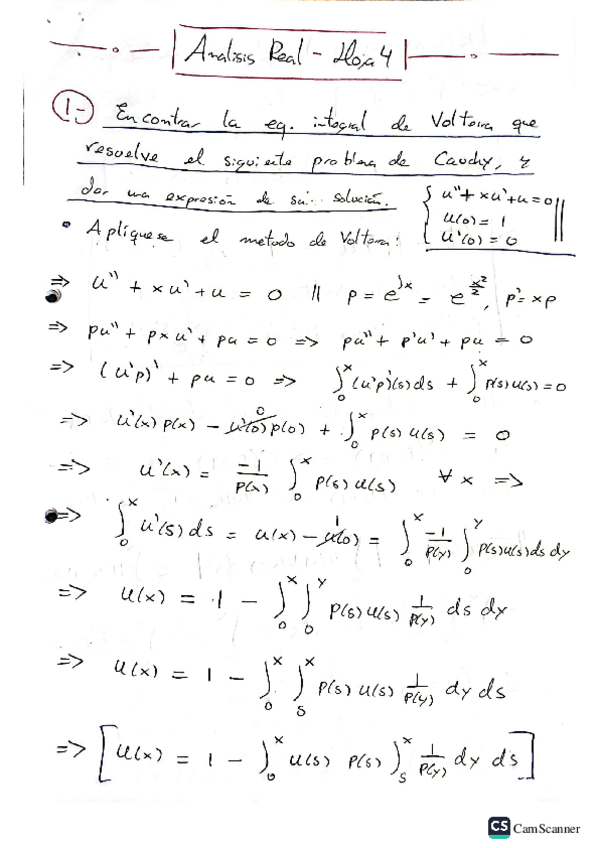 Analisis Real - Hoja 4
1- Encontrar la eq. integral de Volterra que
resuelve el siguiente problema de Cauchy, y
dar una expresión de su solución. { u'' + xu' + u = 0
u(0) = 1
u'(0) = 0
• Aplíquese el metodo de Volterra:
⇒ u'' + xu' + u = 0 || p = e^∫x = e^(x²/2), p' = xp
⇒ pu'' + pxu' + pu = 0 ⇒ pu'' + p'u' + pu = 0
⇒ (u'p)' + pu = 0 ⇒ ∫₀ˣ (u'p)'(s) ds + ∫₀ˣ p(s)u(s) = 0
⇒ u'(x) p(x) - u'(0) p(0) + ∫₀ˣ p(s) u(s) = 0
0
⇒ u'(x) = -1/p(x) ∫₀ˣ p(s) u(s) ∀ x ⇒
⇒ ∫₀ˣ u'(s) ds = u(x) - u(0) = ∫₀ˣ -1/p(y) ∫₀ʸ p(s)u(s) ds dy
1
⇒ u(x) = 1 - ∫₀ˣ ∫₀ʸ p(s) u(s) 1/p(y) ds dy
⇒ u(x) = 1 - ∫₀ˣ ∫ₛˣ p(s) u(s) 1/p(y) dy ds
⇒ [u(x) = 1 - ∫₀ˣ u(s) p(s) ∫ₛˣ 1/p(y) dy ds]
CS CamScanner